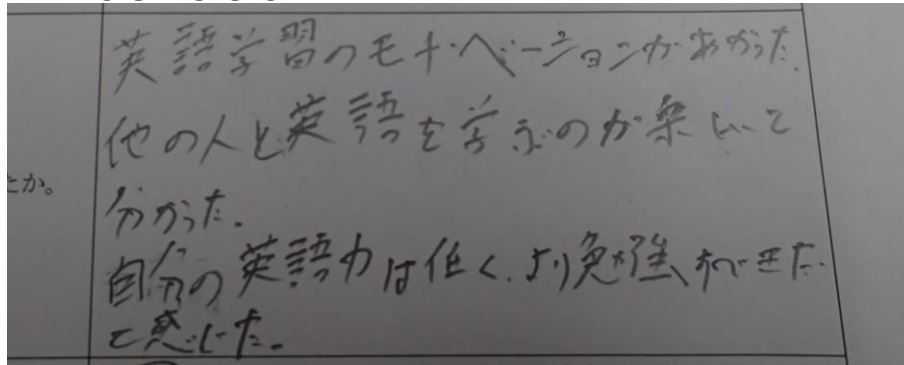 英語学習のモチベーションがあがった。
他の人と英語を学ぶのが楽しいと
たか。
分かった。
自分の英語力は低く、より勉強すべきだ
と感じた。